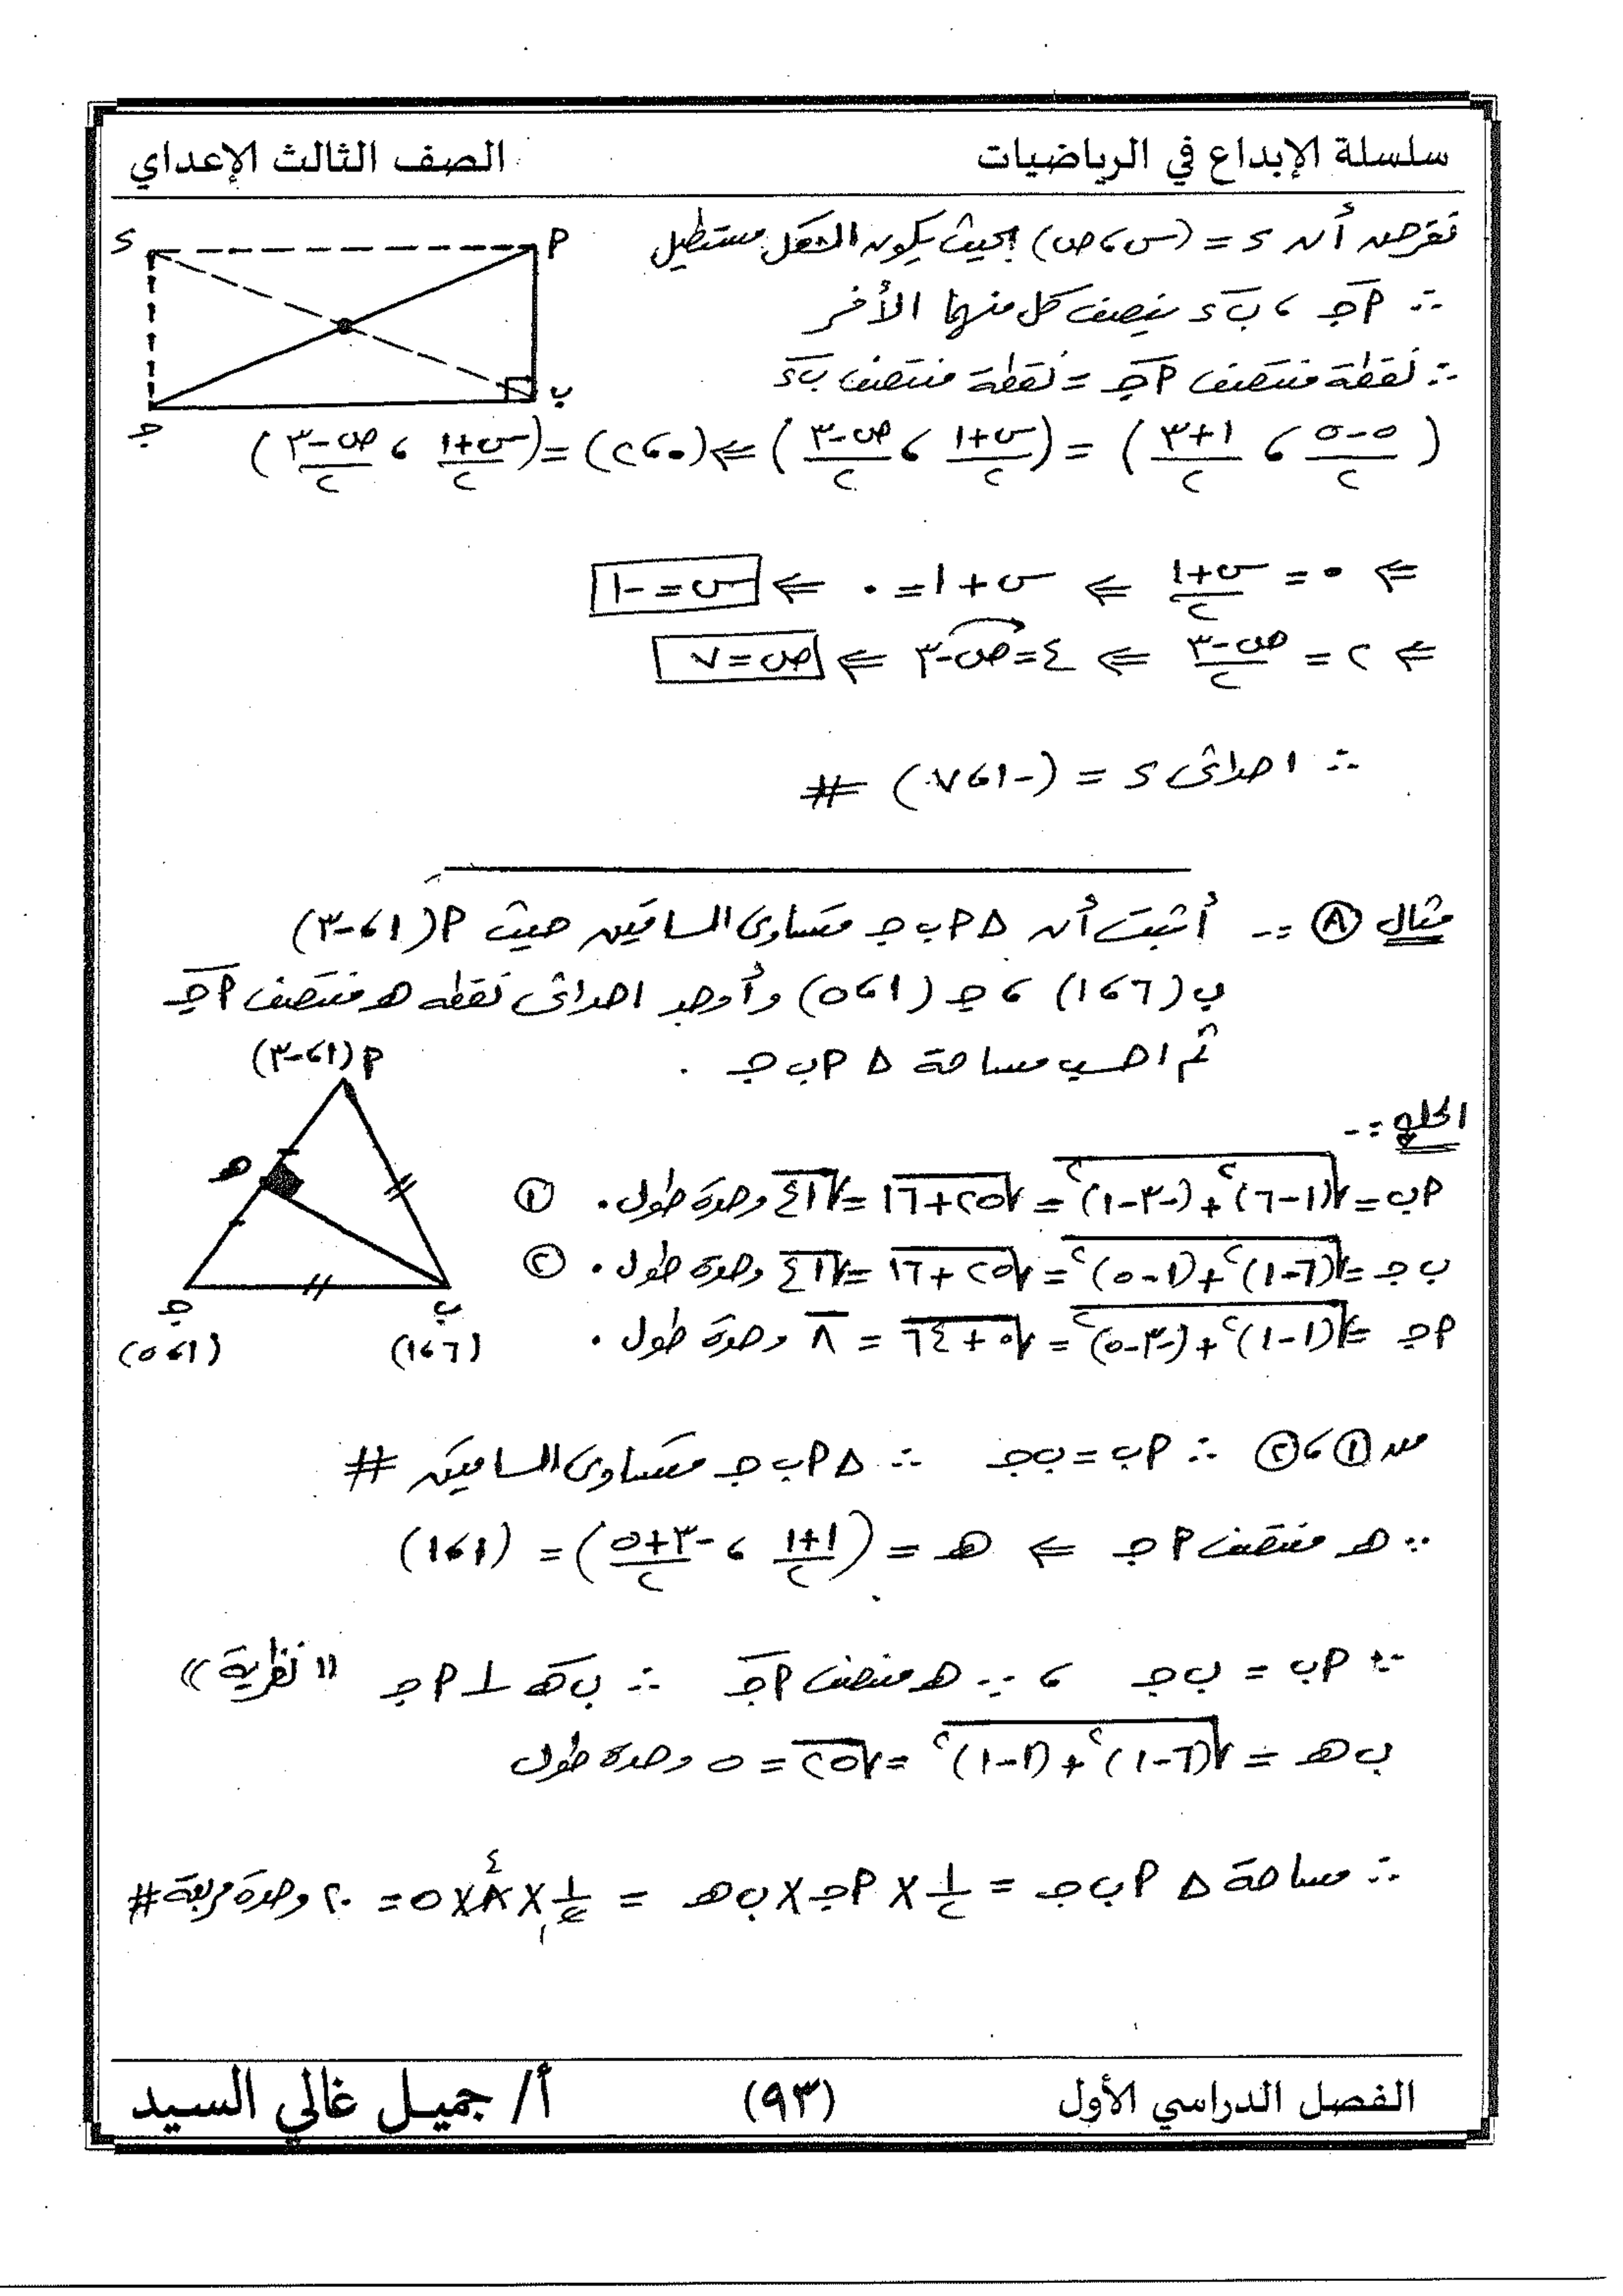 سلسلة الإبداع في الرياضيات
الصف الثالث الإعداي
نفرض أن ء = (س ، ص) بحيث يكون الشكل مستطيل
∴ أجـ ، بء ينصف كل منهما الأخر
∴ نقطة منتصف أجـ = نقطة منتصف بء
((٥-٥)/٢ ، (١+٣)/٢) = ((س+١)/٢ ، (ص-٣)/٢) ⇐ (٠ ، ٢) = ((س+١)/٢ ، (ص-٣)/٢)
ء أ ب جـ
⇐ ٠ = (س+١)/٢ ⇐ س+١ = ٠ ⇐ س = -١
⇐ ٢ = (ص-٣)/٢ ⇐ ٤ = ص-٣ ⇐ ص = ٧
∴ احداثى ء = (-١ ، ٧) #
مثال (٨) :- أثبت أن Δ أ ب جـ متساوى الساقين حيث أ (١ ، -٣)
ب (٦ ، ١) ، جـ (١ ، ٥) وأوجد احداثى نقطه هـ منتصف أجـ
ثم احسب مساحة Δ أ ب جـ .
أ (١ ، -٣)
هـ
جـ ب
(١ ، ٥) (٦ ، ١)
الحل :-
أب = √((١-٦)٢ + (-٣-١)٢) = √(٢٥+١٦) = √٤١ وحدة طول . ①
ب جـ = √((٦-١)٢ + (١-٥)٢) = √(٢٥+١٦) = √٤١ وحدة طول . ②
أجـ = √((١-١)٢ + (-٣-٥)٢) = √(٠+٦٤) = ٨ وحدة طول .
من ① ، ② ∴ أب = ب جـ ∴ Δ أ ب جـ متساوى الساقين #
∵ هـ منتصف أ جـ ⇐ هـ = ((١+١)/٢ ، (-٣+٥)/٢) = (١ ، ١)
∵ أب = ب جـ ، ∵ هـ منتصف أجـ ∴ ب هـ ⊥ أ جـ "نظرية"
ب هـ = √((٦-١)٢ + (١-١)٢) = √٢٥ = ٥ وحدة طول
∴ مساحة Δ أ ب جـ = ١/٢ × أجـ × ب هـ = ١/٢ × ٨ × ٥ = ٢٠ وحدة مربعة #
الفصل الدراسي الأول
(٩٣)
أ/ جميل غالي السيد